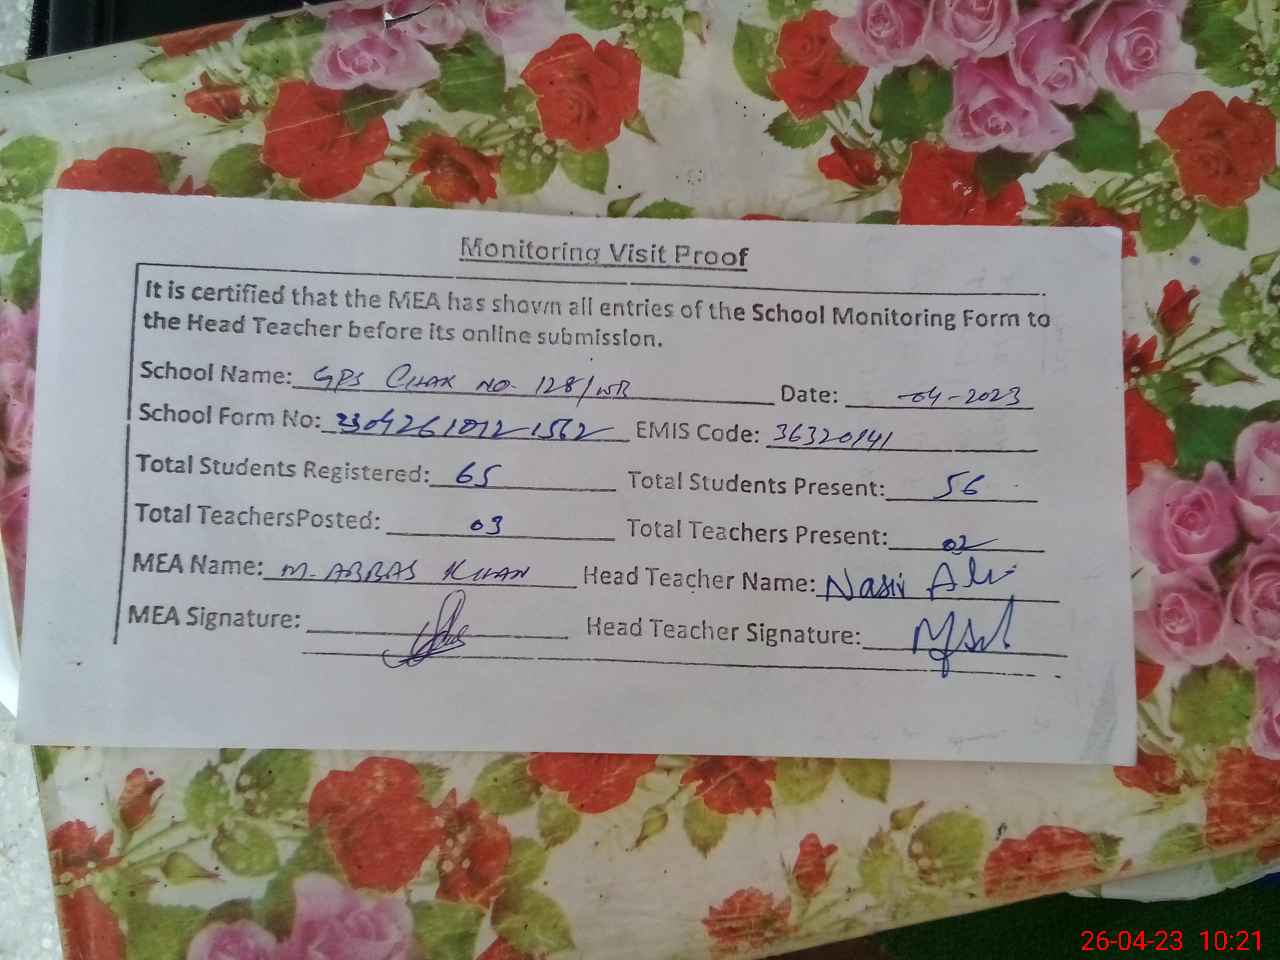 Monitoring Visit Proof
It is certified that the MEA has shown all entries of the School Monitoring Form to
the Head Teacher before its online submission.
School Name: GPS CHAK NO. 128/WB Date: -04-2023
School Form No: EMIS Code: 36320141
Total Students Registered: 65 Total Students Present: 56
Total TeachersPosted: 03 Total Teachers Present: 02
MEA Name: M. ABBAS KHAN Head Teacher Name: Nasir Ali
MEA Signature: Head Teacher Signature:
26-04-23 10:21